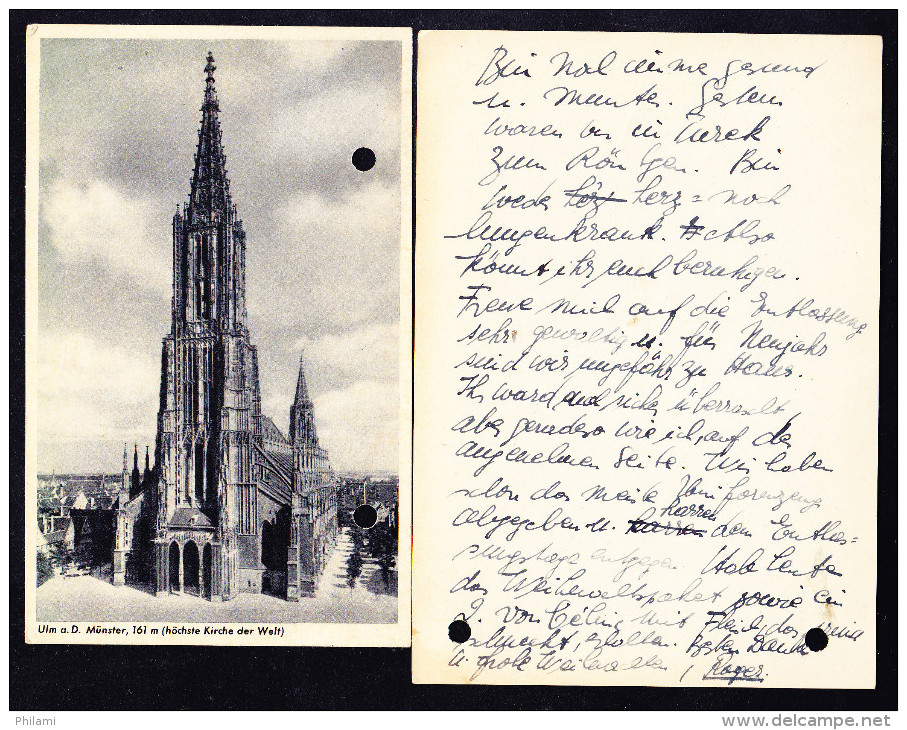 Ulm a. D. Münster, 161 m (höchste Kirche der Welt)
Bin noch immer gesund
u. munter. Gestern
waren wir in
zum Röntgen. Bin
weder herz= noch
lungenkrank. Also
könnt ihr euch beruhigen.
Freue mich auf die Entlassung
sehr gewaltig u. für Neujahr
sind wir ungefähr zu Haus.
Ihr ward auch sicher überrascht,
aber geradeso wie ich, auf der
angenehmen Seite. Wir haben
schon das meiste
abgegeben u. harren dem Entlas=
sungstage entgegen. Habe heute
das Weihnachtspaket sowie ein
2. von mit Fleisch, das prima
schmeckt, erhalten. Besten Dank
u. frohe Weihnachten, Roger.
Philami
http://www.delcampe.net